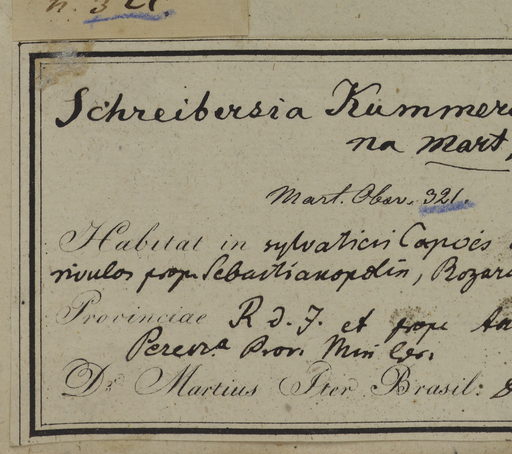 n. 321.
Schreibersia Kummero
na Mart,
Mart. Obsv. 321.
Habitat in sylvaticis Capoës
rivulos prope Sebastianopolin, Rozar
Provinciae R d. J. et prope
Pereira Prov. Min Ger.
Dr. Martius Iter Brasil: